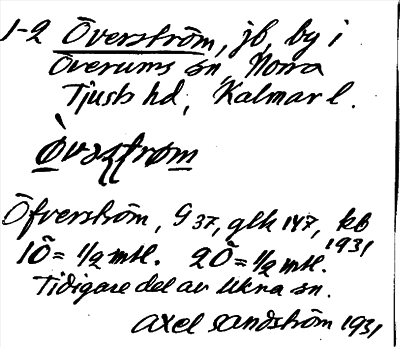 1-2 Överström, jb, by i
Överums sn, Norra
Tjusts hd, Kalmar l.
Öfverström, G 37, glk 147, kb
1931
1Ö = 1/2 mtl. 2Ö = 1/2 mtl.
Tidigare del av Ukna sn.
Axel Sandström 1931